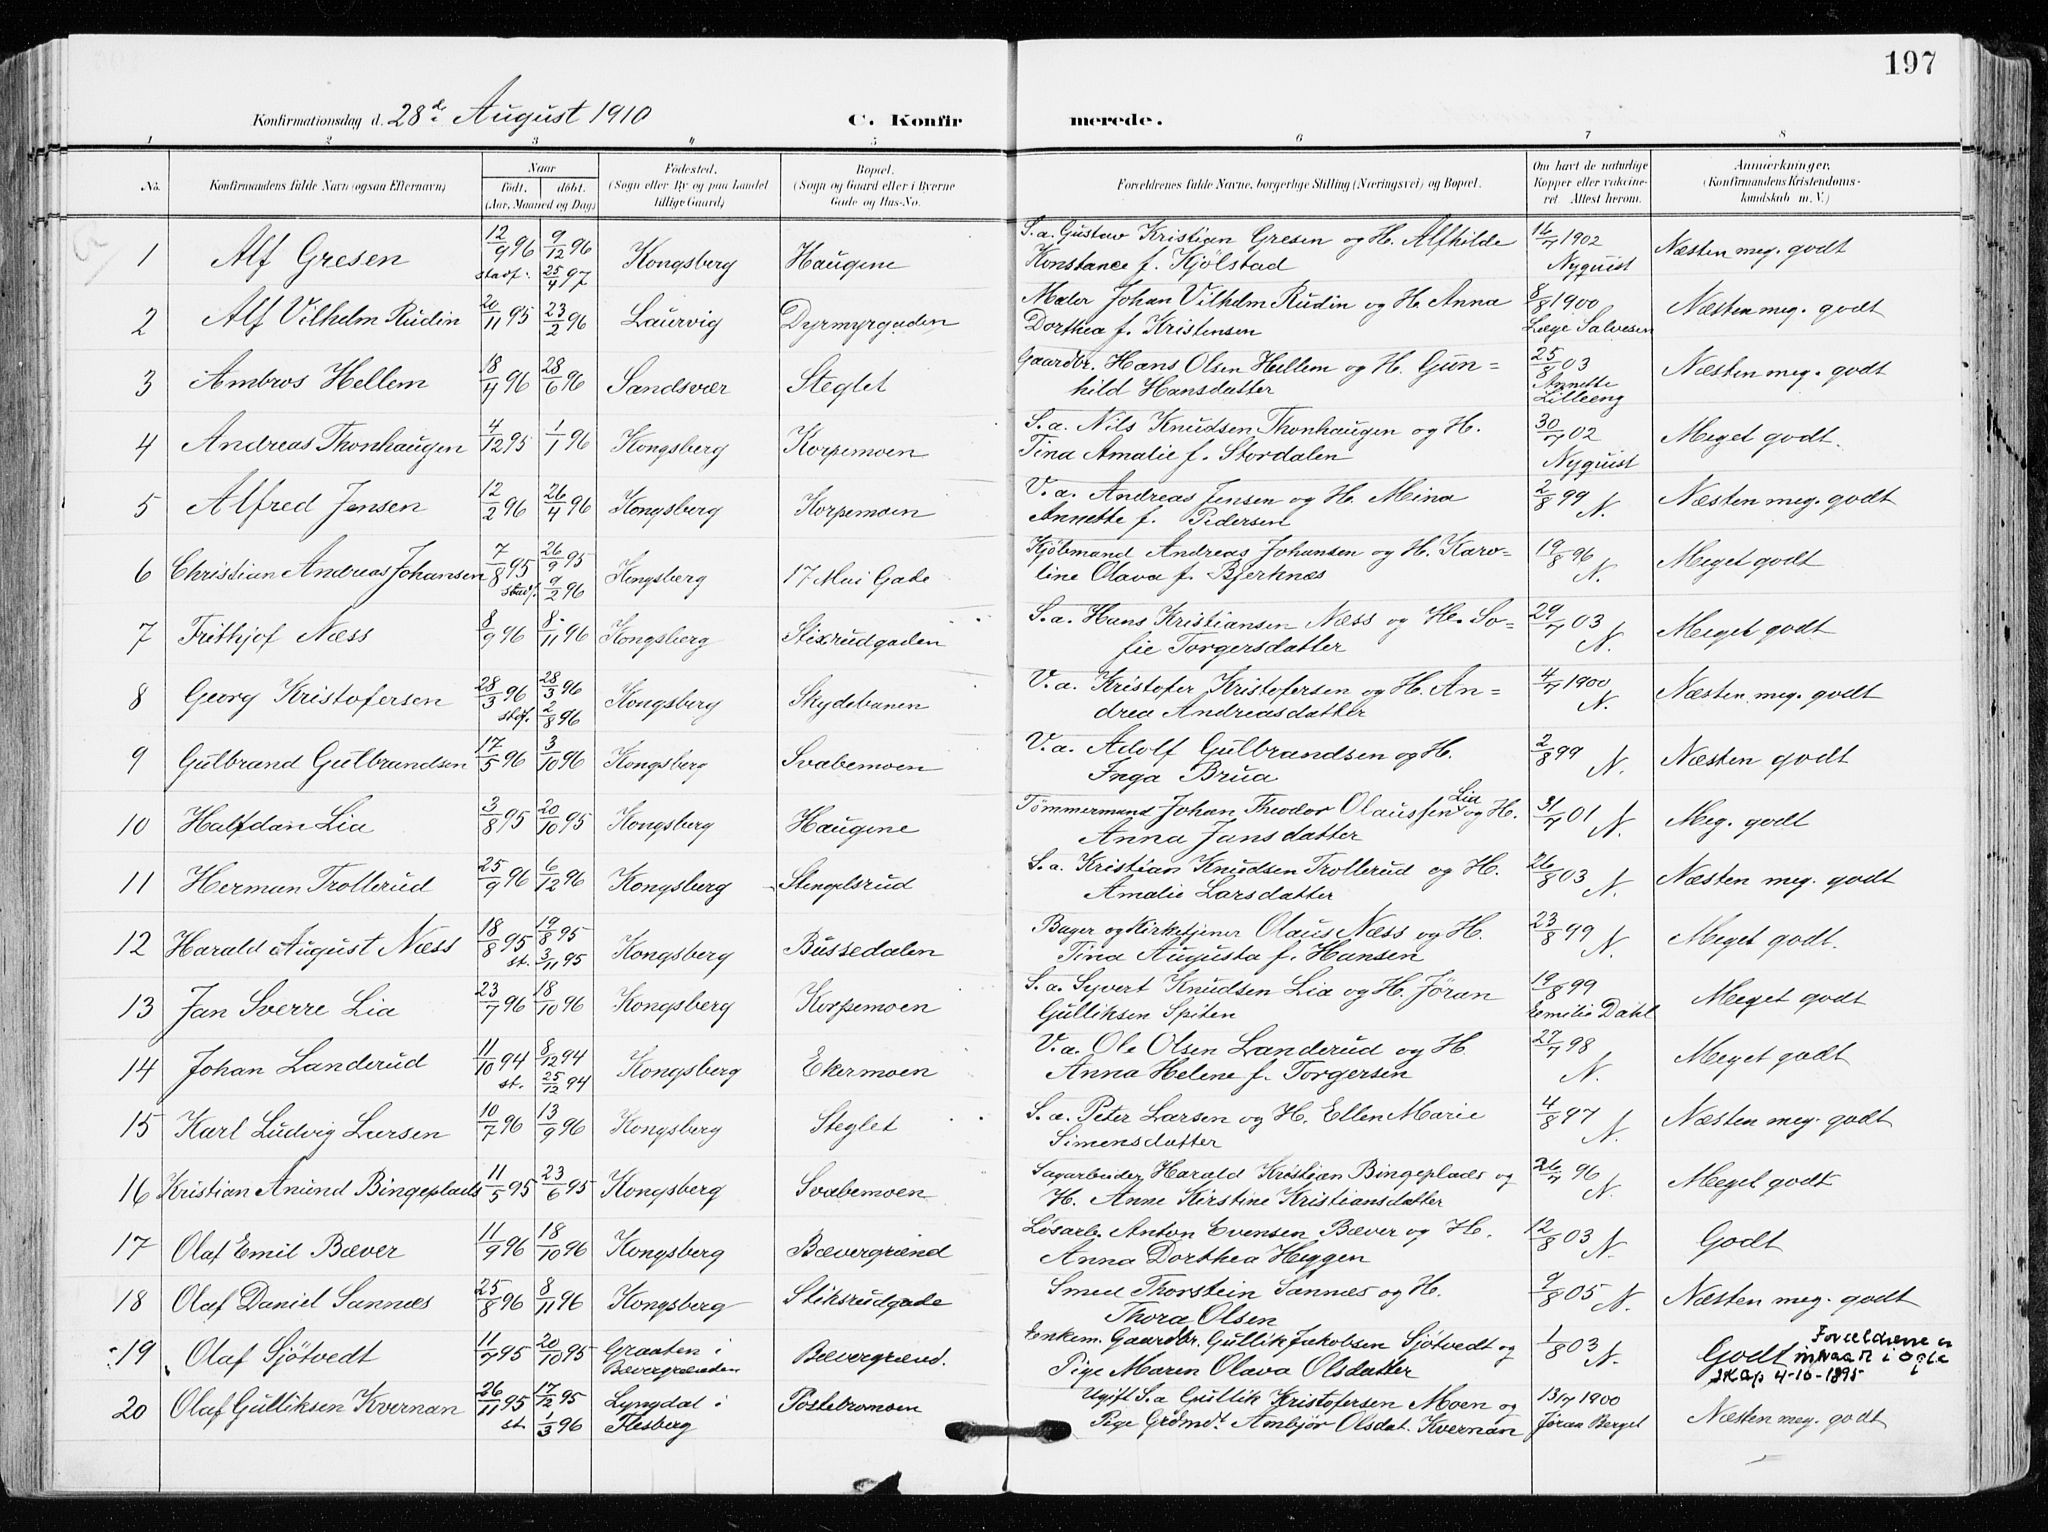 197
Konfirmationsdag d. 28de August 1910 C. Konfirmerede.
1 2 3 4 5 6 7 8
No. Konfirmandens fulde Navn (ogsaa Efternavn) Naar födt. döbt. (Aar, Maaned og Dag) Födested. (Sogn eller By og paa Landet tillige Gaard) Bopæl. (Sogn og Gaard eller i Byerne Gade og Hus-No. Forældrenes fulde Navne, borgerlige Stilling (Næringsvei) og Bopæl. Om havt de naturlige Kopper eller vakcineret Attest herom. Anmærkninger, (Konfirmandens Kristendomskundskab m. V.)
1 Alf Gresen 12/9 96 stadf. 9/12 96 25/4 97 Kongsberg Haugene S. a. Gustav Kristian Gresen og H. Alfhilde
Konstance f. Kjölstad 14/7 1902 Nyquist Næsten meg. godt
2 Alf Vilhelm Rudin 20/11 95 23/2 96 Laurvig Dyrmyrgaden Maler Johan Vilhelm Rudin og H. Anna
Dorthea f. Kristensen 8/8 1900 Læge Salvesen Næsten meg. godt
3 Ambros Hellem 18/4 96 28/6 96 Sandsvær Steglet Gaardbr. Hans Olsen Hellem og H. Gun=
hild Hansdatter 25/8 03 Annette Lilleeng Næsten meg. godt
4 Andreas Thonhaugen 4/12 95 1/1 96 Kongsberg Korpemoen S. a. Nils Knudsen Thonhaugen og H.
Tina Amalie f. Stordalen 30/7 02 Nyquist Meget godt.
5 Alfred Jensen 12/2 96 26/4 96 Kongsberg Korpemoen V. a. Andreas Jensen og H. Mina
Annette f. Pedersen 2/8 99 N. Næsten meg. godt
6 Christian Andreas Johansen 7/8 95 stadf. 26/9 95 9/2 96 Kongsberg 17 Mai Gade Kjöbmand Andreas Johansen og H. Karo=
line Olava f. Bjerknæs 19/8 96 N. Meget godt
7 Frithjof Næss 8/9 96 8/11 96 Kongsberg Stixrudgaden S. a. Hans Kristiansen Næss og H. So=
fie Torgersdatter 29/7 03 N. Meget godt
8 Georg Kristofersen 28/3 96 stof. 28/3 96 2/8 96 Kongsberg Skydebanen V. a. Kristofer Kristofersen og H. An=
drea Andreasdatter 4/7 1900 N. Næsten meg. godt
9 Gulbrand Gulbrandsen 17/5 96 3/10 96 Kongsberg Svabemoen V. a. Adolf Gulbrandsen og H.
Inga Brua 2/8 99 N. Næsten godt
10 Halfdan Lia 3/8 95 20/10 95 Kongsberg Haugene Tömmermand Johan Theodor Olaussen Lia og H.
Anna Jansdatter 31/7 01 N. Meg. godt
11 Herman Trollerud 25/9 96 6/12 96 Kongsberg Stengelsrud S. a. Kristian Knudsen Trollerud og H.
Amalie Larsdatter 26/8 03 N. Næsten meg. godt
12 Harald August Næss 18/8 95 st. 19/8 95 3/11 95 Kongsberg Bussedalen Bager og Kirketjener Olaus Næss og H.
Tina Augusta f. Hansen 23/8 99 N. Meget godt.
13 Jan Sverre Lia 23/7 96 18/10 96 Kongsberg Korpemoen S. a. Syvert Knudsen Lia og H. Jöran
Gulliksen Spiten 19/8 99 Emilie Dahl Meget godt
14 Johan Landerud 11/10 94 st. 8/12 94 25/12 94 Kongsberg Ekermoen V. a. Ole Olsen Landerud og H
Anna Helene f. Torgersen 27/7 98 N. Meget godt
15 Karl Ludvig Larsen 10/7 96 13/9 96 Kongsberg Steglet S. a. Peter Larsen og H. Ellen Marie
Simensdatter 4/8 97 N. Næsten meg. godt
16 Kristian Anund Bingeplads 11/5 95 23/6 95 Kongsberg Svabemoen Sagarbeider Harald Kristian Bingeplads og
H. Anne Kirstine Kristiansdatter 26/7 96 N. Meget godt
17 Olaf Emil Bæver 11/9 96 18/10 96 Kongsberg Bævergrænd Lösarb. Anton Evensen Bæver og H.
Anna Dorthea Heggen 12/8 03 N. Godt
18 Olaf Daniel Sannæs 25/8 96 8/11 96 Kongsberg Stiksrudgade Smed Thorstein Sannæs og H.
Thora Olsen 9/8 05 N. Næsten meg. godt
19 Olaf Sjötvedt 11/7 95 20/10 95 Graaten i Bævergrænden Bævergrænd. Enkem. Gaardbr. Gullik Jakobsen Sjötvedt og
Pige Maren Olava Olsdatter 1/8 03 N. Godt Forældrene er indgaaet i ægteskap 4-10-1895
20 Olaf Gulliksen Kvernan 26/11 95 st. 17/12 95 1/3 96 Lyngdal i Flesberg Pöstebromoen Ugift S. a Gullik Kristofersen Moen og
Pige Ambjör Olsdat. Kvernan 13/7 1900 Jöran Berget Næsten meg. godt